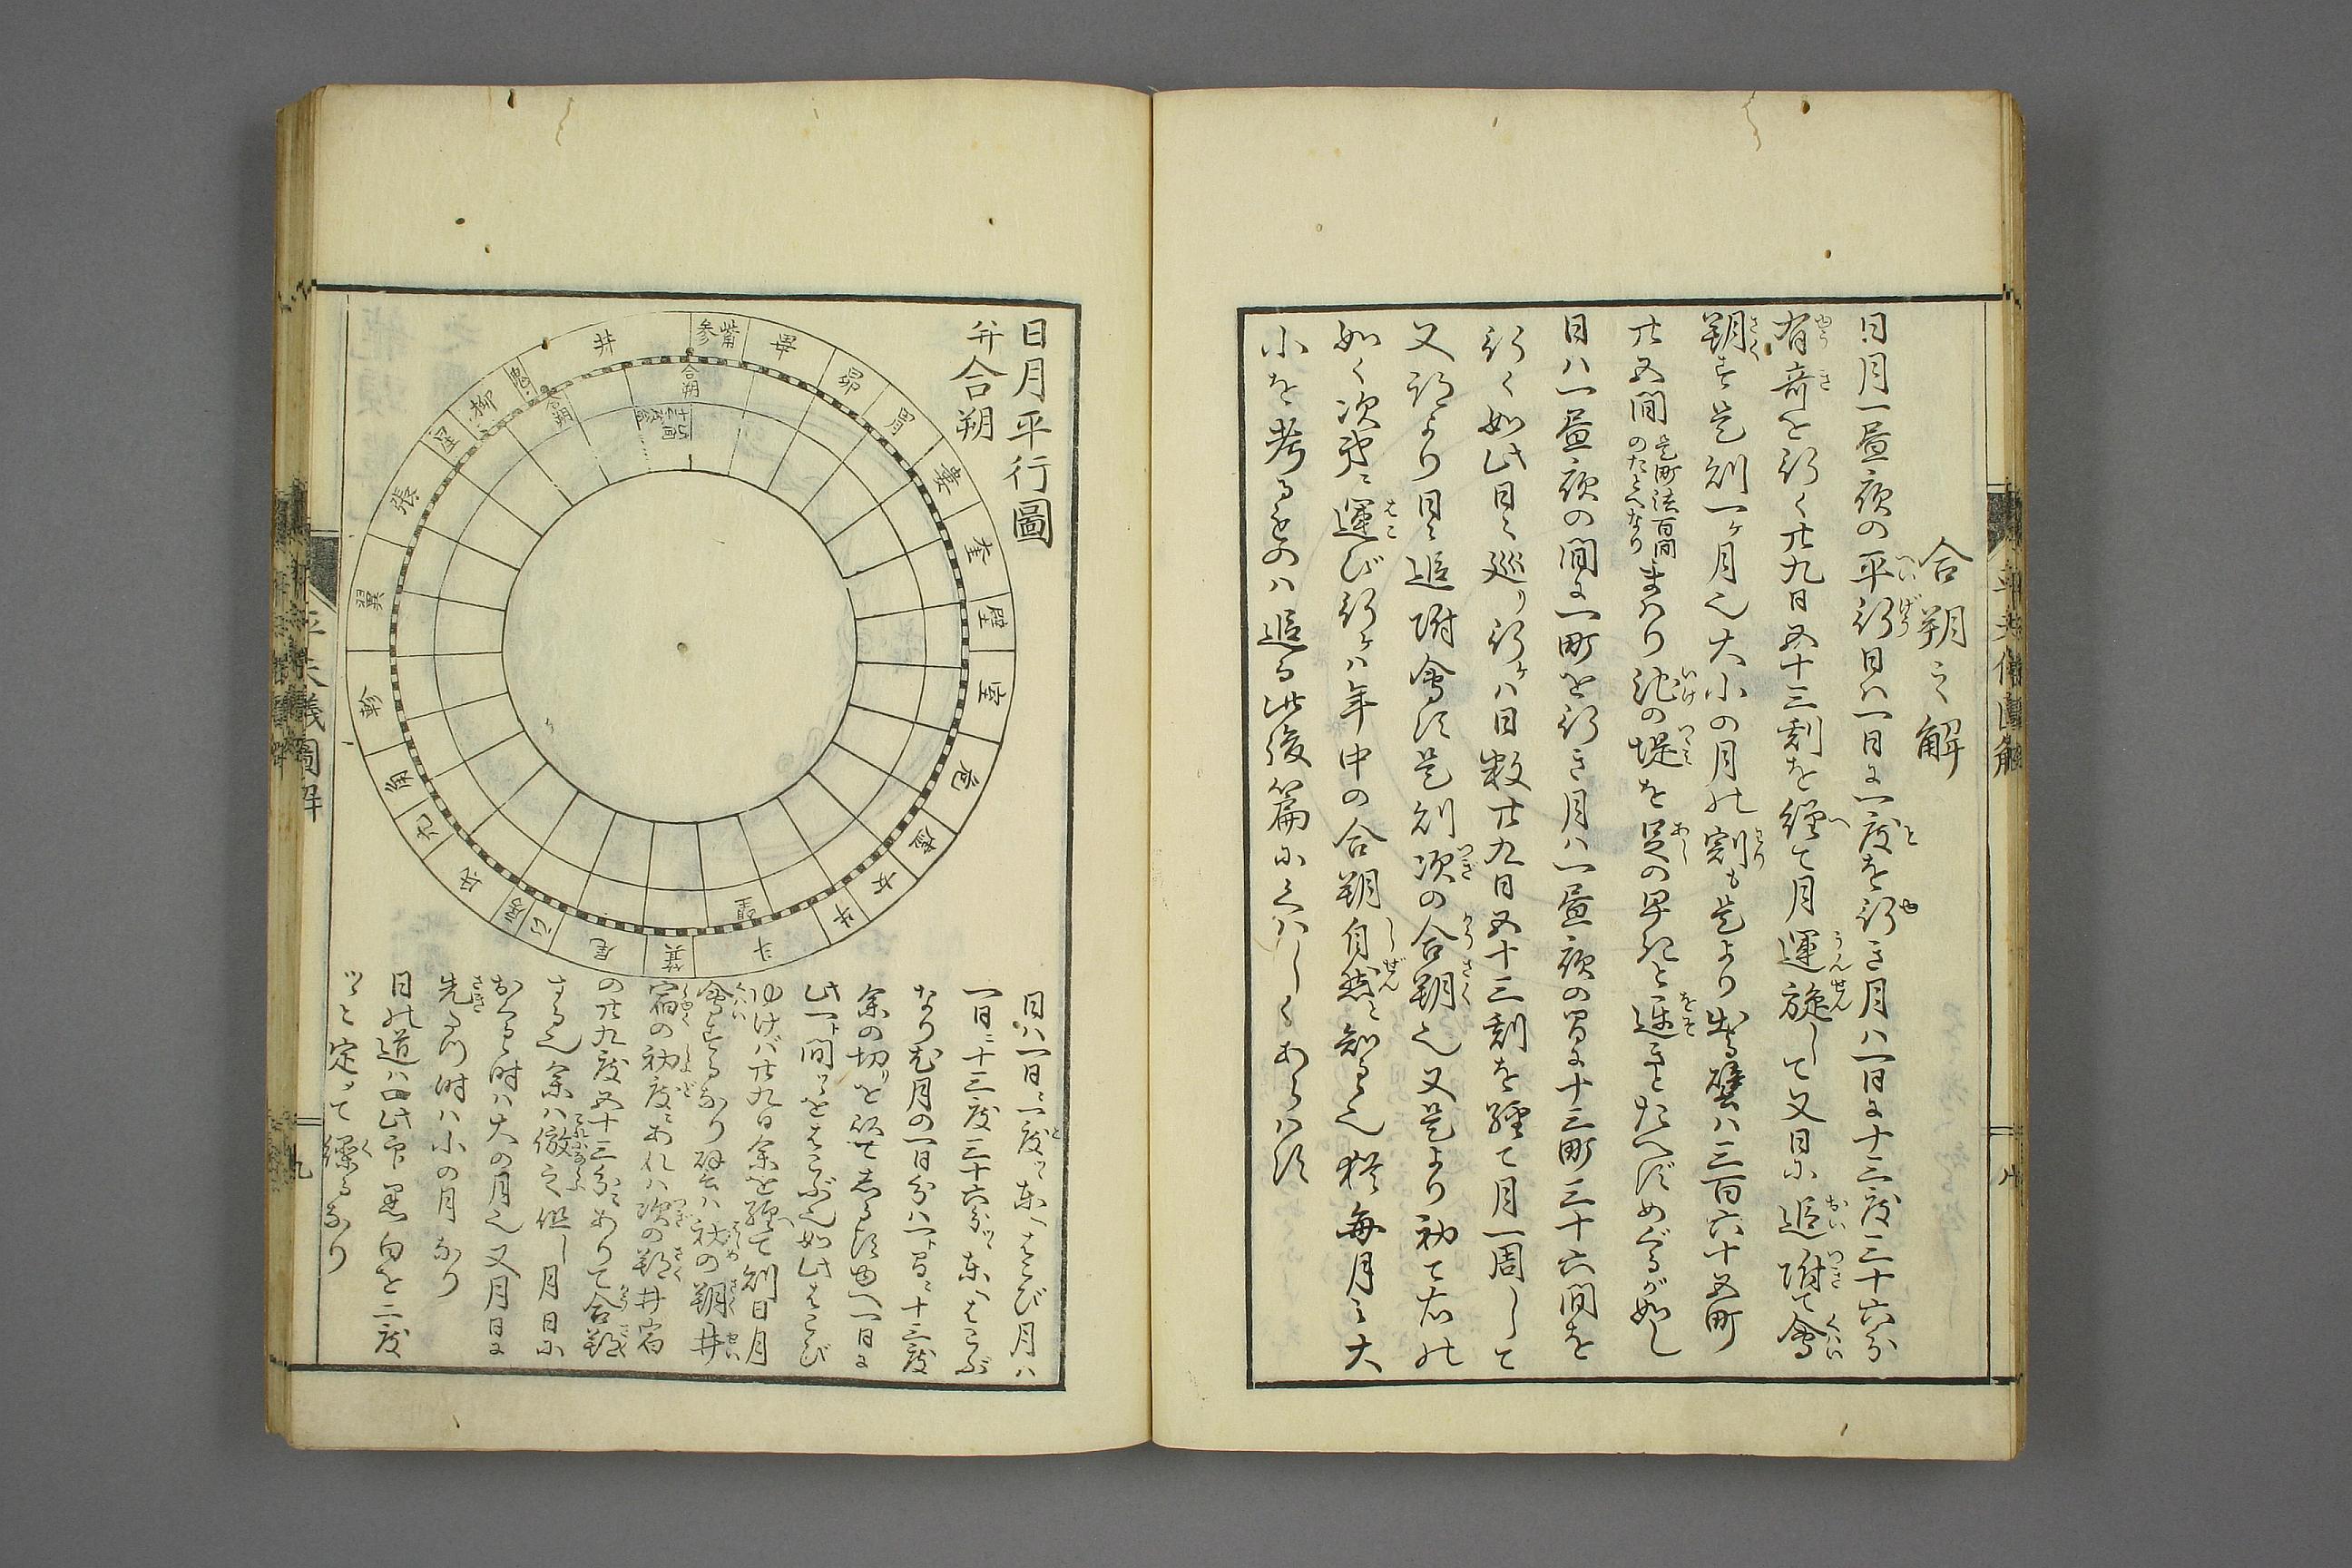 合朔之解
日月一昼夜の平行日ハ一日に一度を行き月ハ一日に十三度三十六分
有奇を行く廿九日五十三刻を經て月運旋して又日に追附て會
朔す是則一ケ月也大小の月の割も是より出る譬ハ三百六十五町
廿五間
是町法百間
のたとへなり
まハり池の堤を足の早きと遅きとたへずめぐるが如し
日ハ一昼夜の間に一町を行き月ハ一昼夜の間に十三町三十六間を
行く如此日々巡り行ケハ日数廿九日五十三刻を經て月一周して
又初より日に追附會す是則次の合朔也又是より初て右の
如く次第に運び行ケハ年中の合朔自然と知る也猶毎月之大
小を考るものハ追而此後篇にくハしくあらハす
日月平行圖
并合朔
参 觜 畢 昴 胃 婁 奎 壁 室 危 虚 女 牛 斗 箕 尾 心 房 氐 亢 角 軫 翼 張 星 柳 鬼 井
合朔
合朔
望
日ハ一日に一度ツヽ東へはこび月ハ
一日に十三度三十六分ツヽ東へはこぶ
なり尤月の一日分ハ一ト間に十三度
余の切りを以てしるす由へ一日に
此一ト間ツヽをはこぶ也如此はこび
ゆけバ廿九日余を經て則日月
會するなり譬ハ初の朔井
宿の初度にあれハ次の朔井宿
の廿九度五十三分にありて合朔
する也余ハ傚之但し月日に
おくるヽ時ハ大の月也又月日に
先だつ時ハ小の月なり
日の道ハ此印黒白を二度
ツヽと定めて繰るなり
九